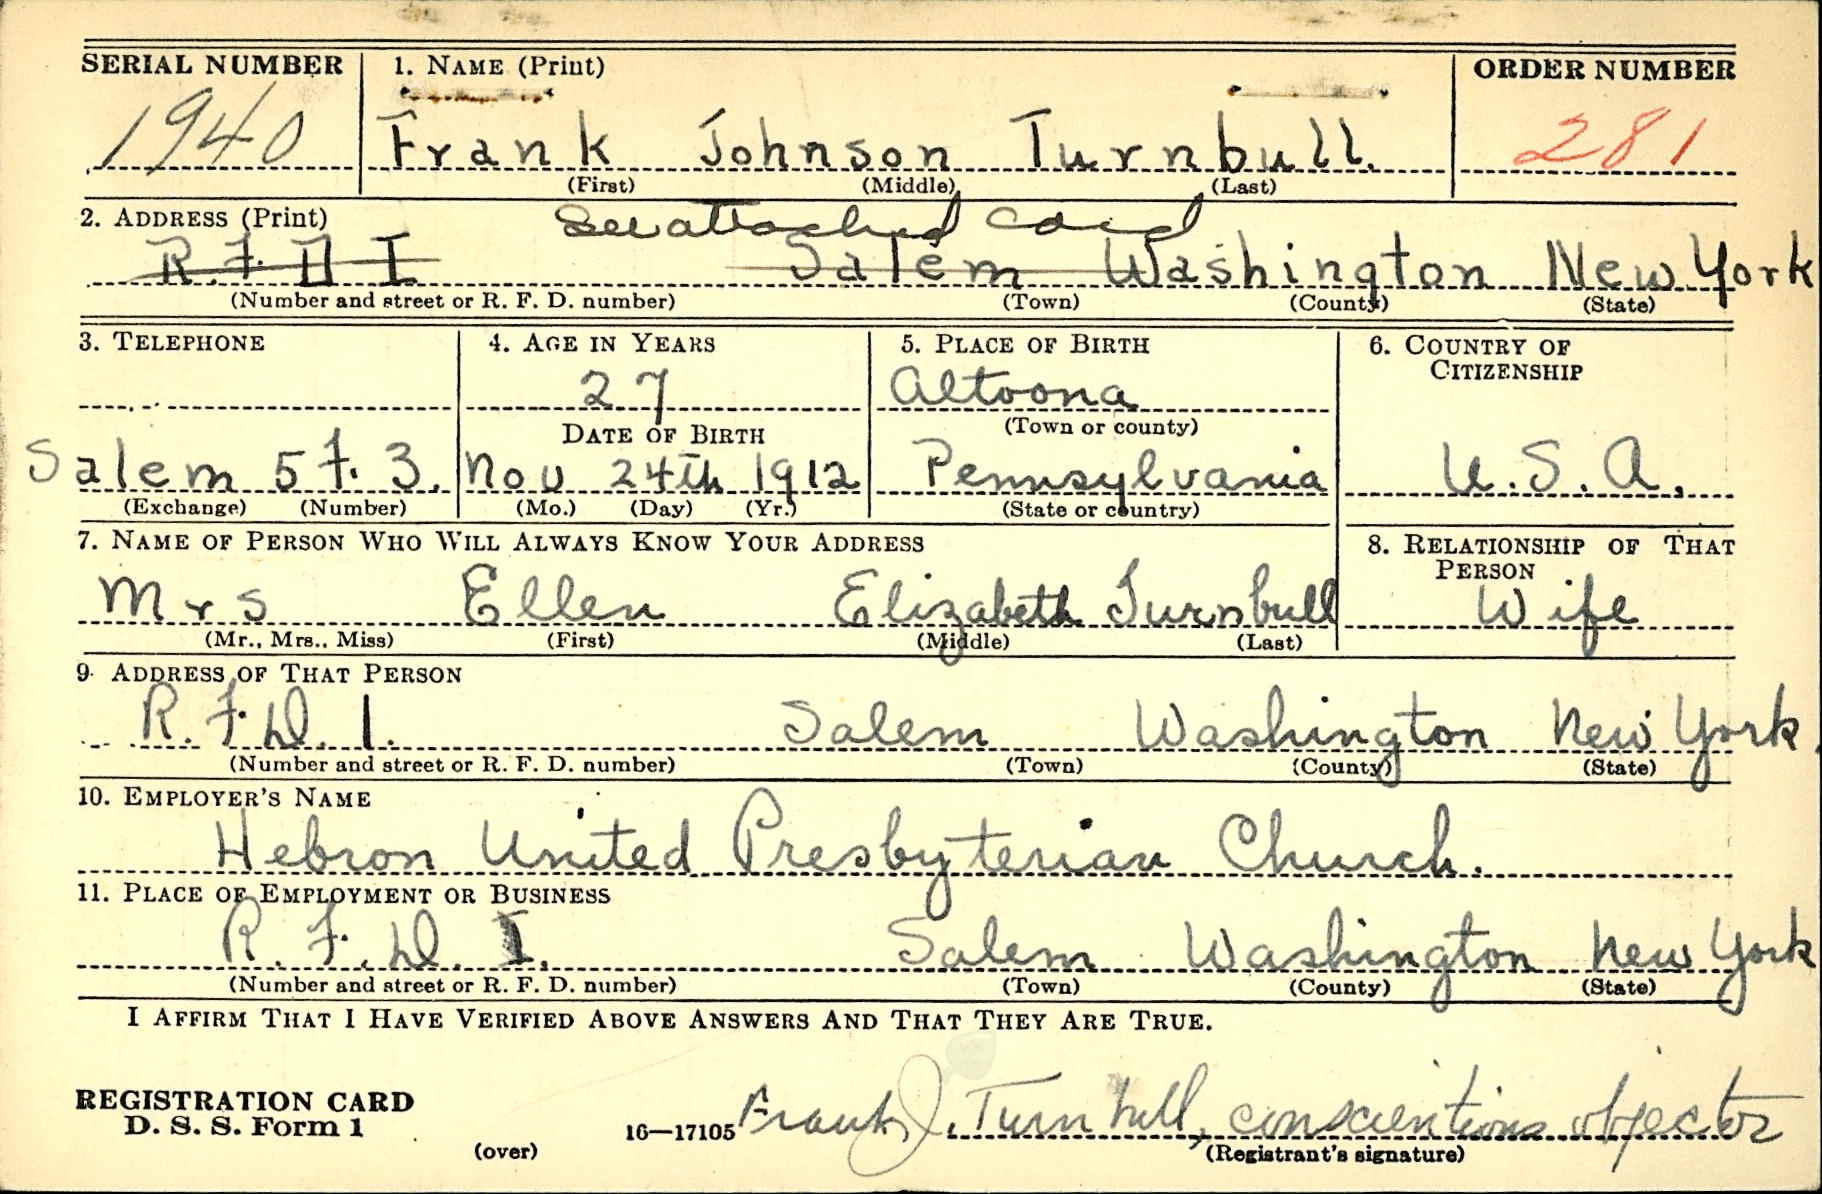 SERIAL NUMBER 1. NAME (Print) ORDER NUMBER
1940 Frank Johnson Turnbull. 281
(First) (Middle) (Last)
2. ADDRESS (Print) See attached card
R. F. D I Salem Washington New York
(Number and street or R. F. D. number) (Town) (County) (State)
3. TELEPHONE 4. AGE IN YEARS 5. PLACE OF BIRTH 6. COUNTRY OF CITIZENSHIP
27 Altoona
DATE OF BIRTH (Town or county)
Salem 5 F. 3. Nov 24th 1912 Pennsylvania U.S.A.
(Exchange) (Number) (Mo.) (Day) (Yr.) (State or country)
7. NAME OF PERSON WHO WILL ALWAYS KNOW YOUR ADDRESS 8. RELATIONSHIP OF THAT PERSON
Mrs Ellen Elizabeth Turnbull Wife
(Mr., Mrs., Miss) (First) (Middle) (Last)
9. ADDRESS OF THAT PERSON
R. F. D. 1. Salem Washington New York.
(Number and street or R. F. D. number) (Town) (County) (State)
10. EMPLOYER'S NAME
Hebron United Presbyterian Church.
11. PLACE OF EMPLOYMENT OR BUSINESS
R. F. D. I. Salem Washington New York
(Number and street or R. F. D. number) (Town) (County) (State)
I AFFIRM THAT I HAVE VERIFIED ABOVE ANSWERS AND THAT THEY ARE TRUE.
REGISTRATION CARD
D. S. S. Form 1 16—17105 Frank J. Turnbull, conscientious objector
(over) (Registrant's signature)